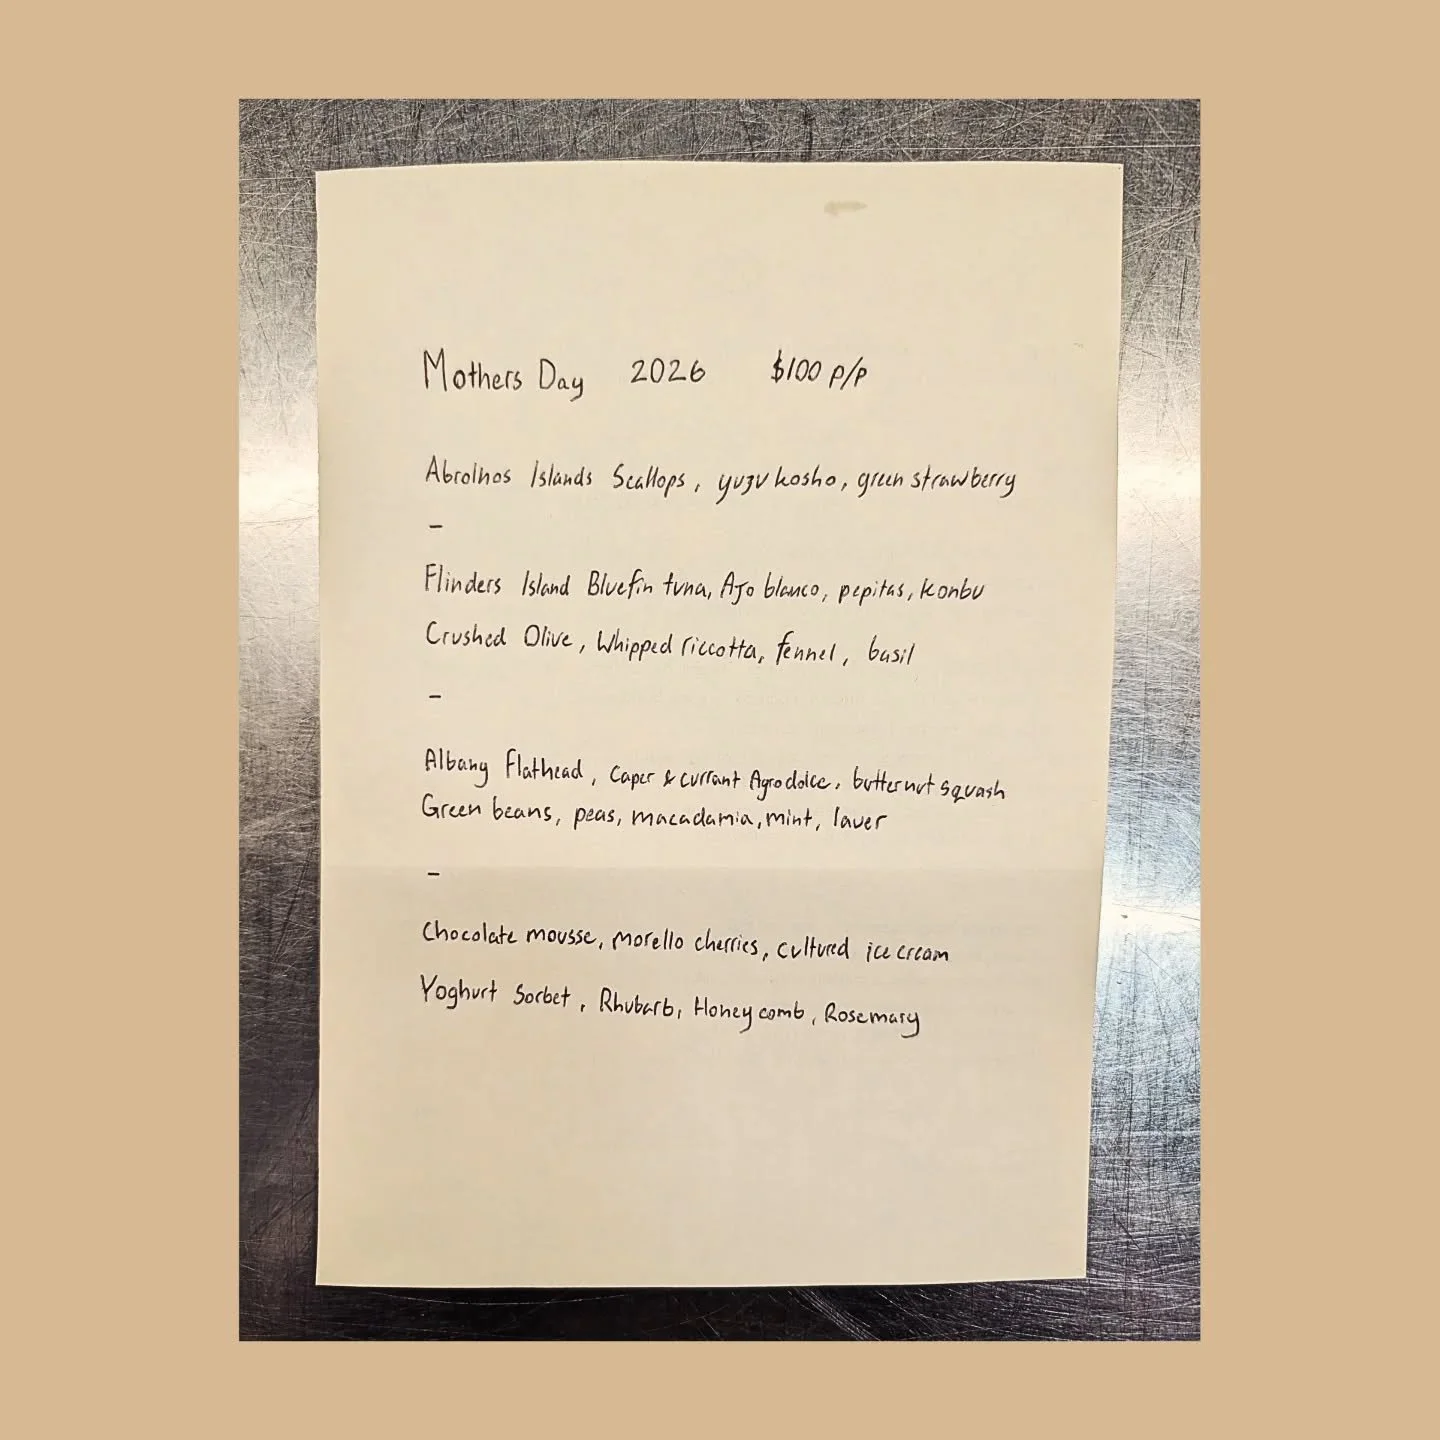 Mothers Day 2026 $100 p/p
Abrolhos Islands Scallops, yuzu kosho, green strawberry
-
Flinders Island Bluefin tuna, Ajo blanco, pepitas, konbu
Crushed Olive, Whipped riccotta, fennel, basil
-
Albany Flathead, caper & currant Agrodolce, butternut squash
Green beans, peas, macadamia, mint, laver
-
Chocolate mousse, morello cherries, cultured ice cream
Yoghurt Sorbet, Rhubarb, Honeycomb, Rosemary